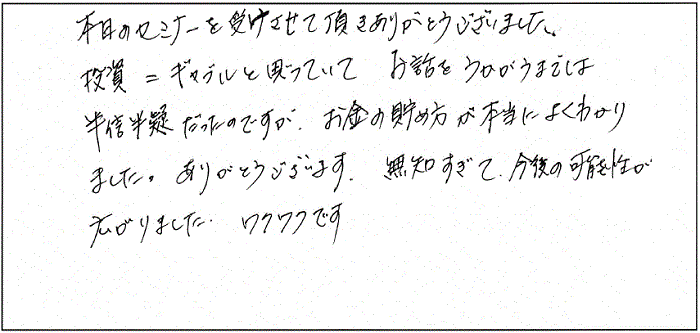 本日のセミナーを受けさせて頂きありがとうございました。
投資=ギャンブルと思っていて お話をうかがうまでは
半信半疑だったのですが、お金の貯め方が本当によくわかり
ました。ありがとうございます。無知すぎて、今後の可能性が
広がりました。ワクワクです